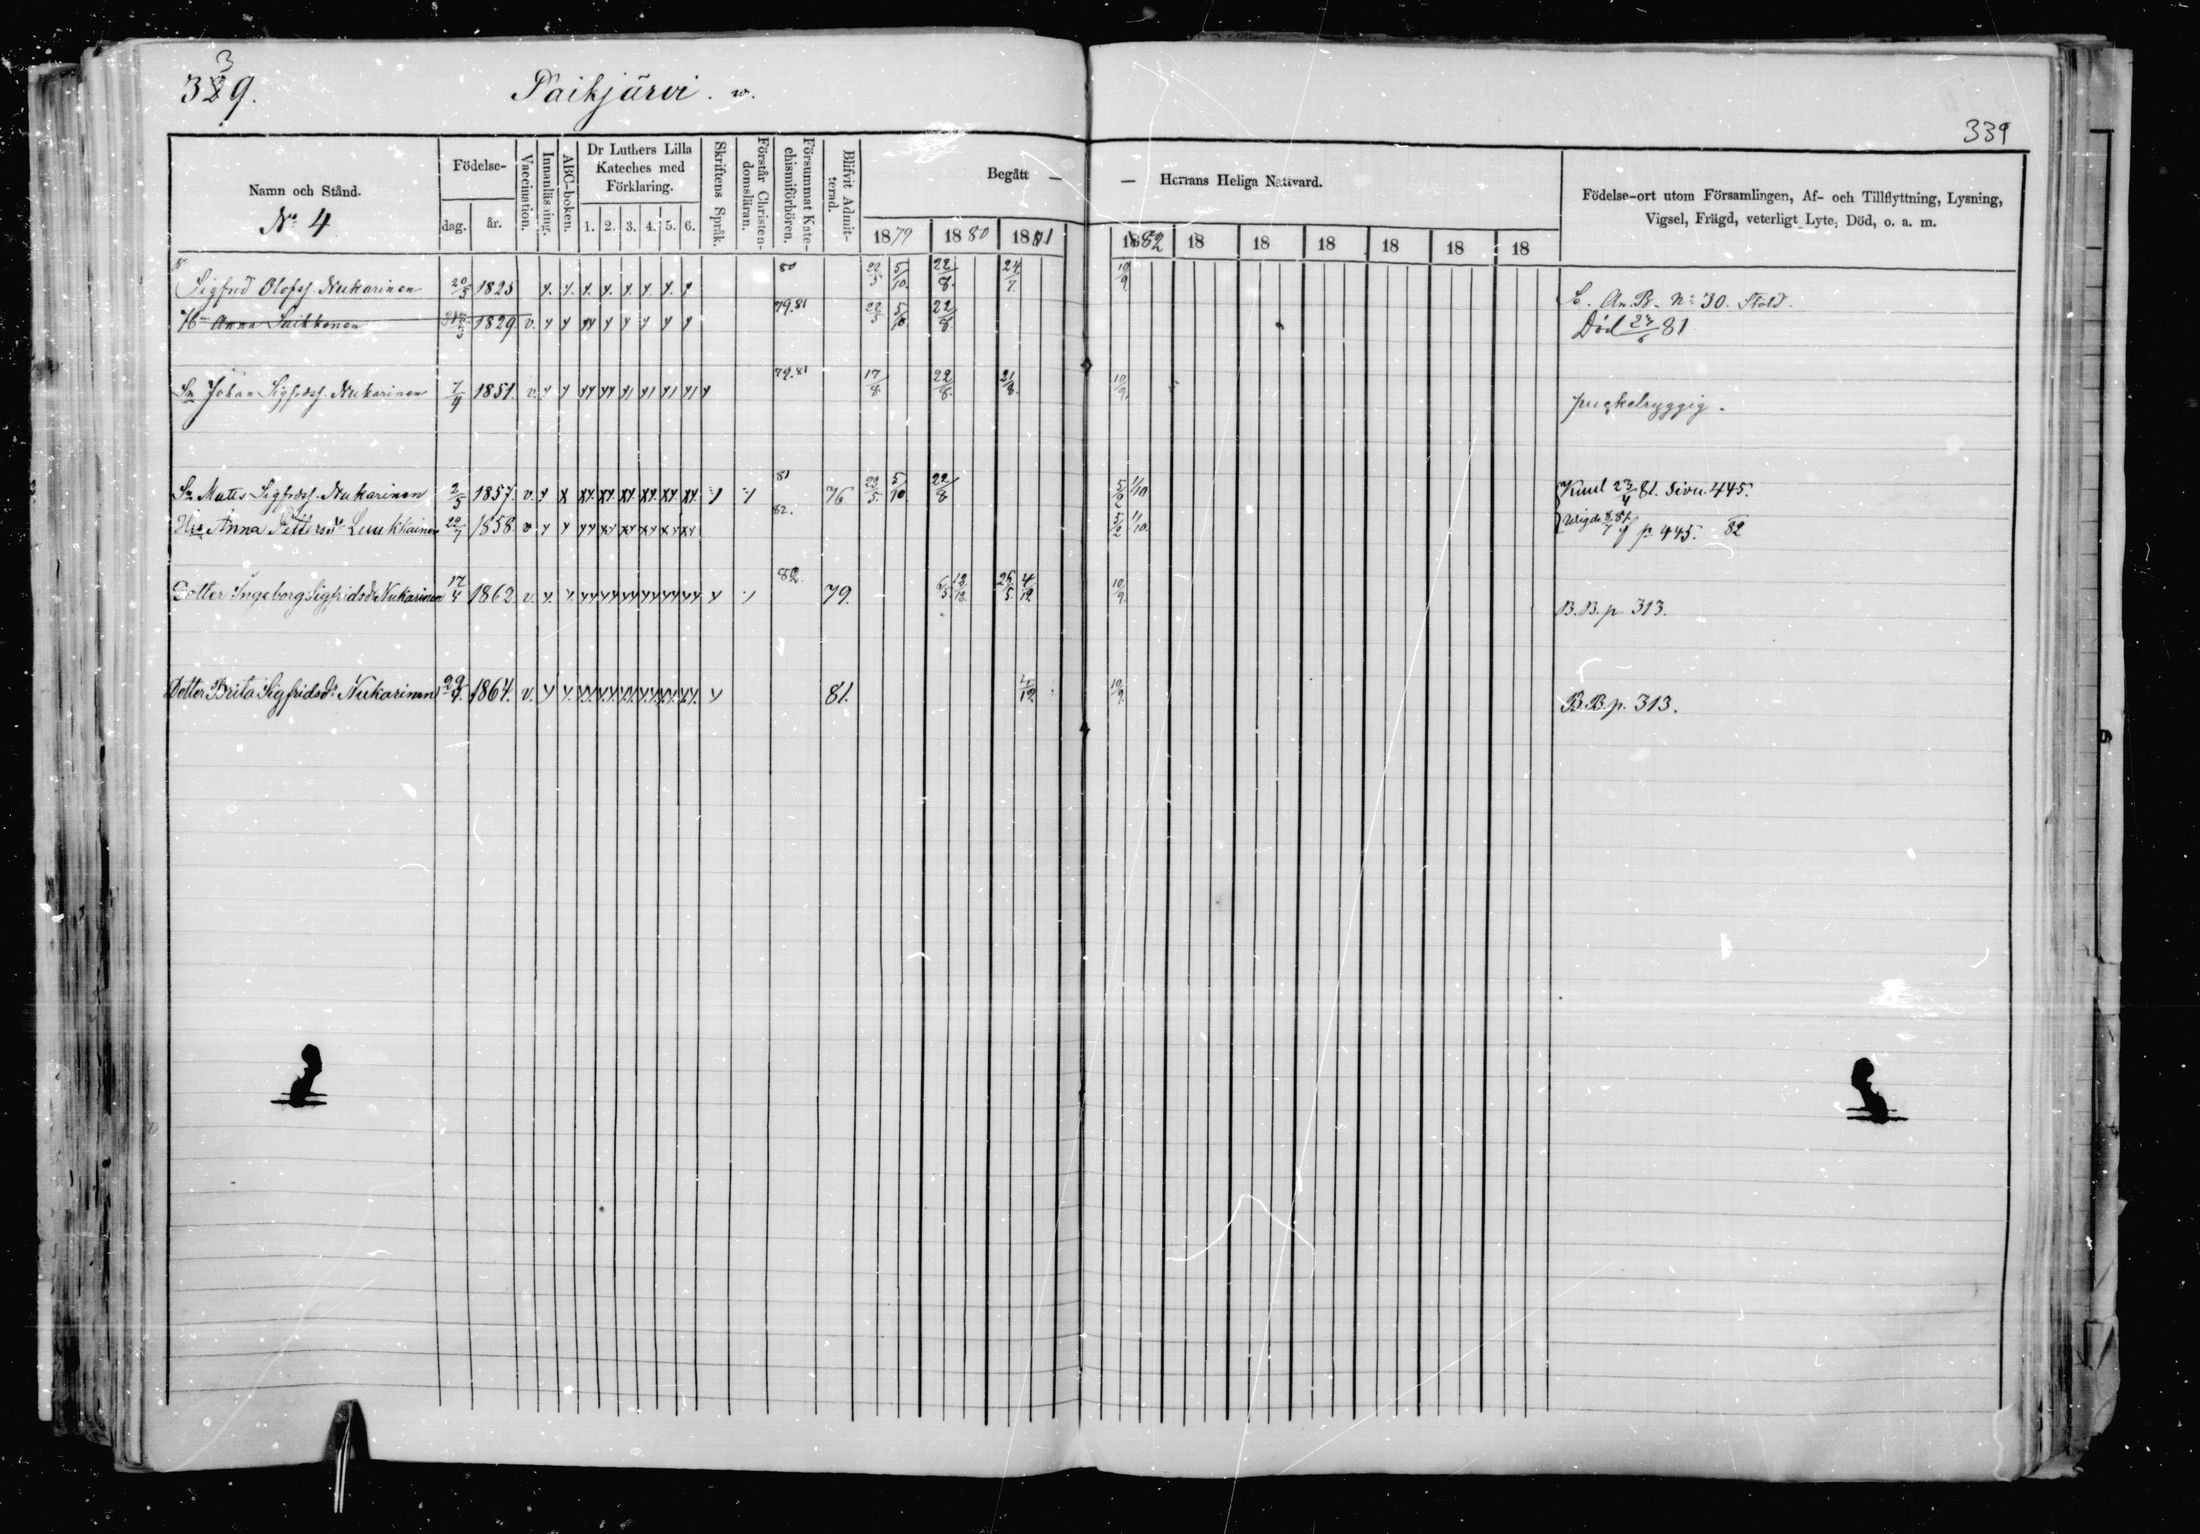 339.
Paikjärvi. w.
339
Namn och Stånd.
No 4
Födelse-
dag.
år.
Vaccination.
Innanläsning.
ABC-boken.
Dr Luthers Lilla
Kateches med
Förklaring.
1. 2. 3. 4. 5. 6.
Skriftens Språk.
Förstår Christen-
domsläran.
Försummat Kate-
chismiförhören.
Blifvit Admit-
terad.
Begått —
— Herrans Heliga Nattvard.
1879 1880 1881 1882 18 18 18 18 18 18
Födelse-ort utom Församlingen, Af- och Tillflyttning, Lysning,
Vigsel, Frägd, veterligt Lyte, Död, o. a. m.
Sigfrid Olofss. Nukarinen 20/5 1825 y. y. y. y. y. y. y. y 80 22/5 5/10. 22/8. 24/7. 10/9. An. B. No 30. Stöld.
Hu Anna Saikkonen 1829. v. y y yy y y y y y 79.81 22/5 5/10 22/8. Död 81
Sn Johan Sigfrdss. Nukarinen 7/4 1851. v. y y yy yy y1 y1 y1 y1 y 79.81 17/8. 22/8. 21/8. 10/9. puckelryggig.
Sn Matts Sigfrdss. Nukarinen 2/5 1857. v. y x xy. xy. xy. xy. xy. xy. 81 76 22/5. 5/10. 22/8 5/2 1/10 Kuul 23/4 81. Sivu. 445.
Hu Anna Pettersdr Luukkainen 20/7 1858. v. y y yy xy xy xy xy xy 82. 5/2 1/10. Wigde p 445. 82
Dotter Ingeborg Sigfridsdr Nukarinen 17/4 1862 v. y. y. yy yy yy yy yy yy y 82. 79. 6/5. 12/12. 26/5. 4/12. 10/9. B.B. p. 313.
Dotter Brita Sigfridsdr Nukarinen 1864. v. y y. y.y. y.y. y.y. y.y. y.y. y.y. y 81. 4/12. 10/9. B.B. p. 313.